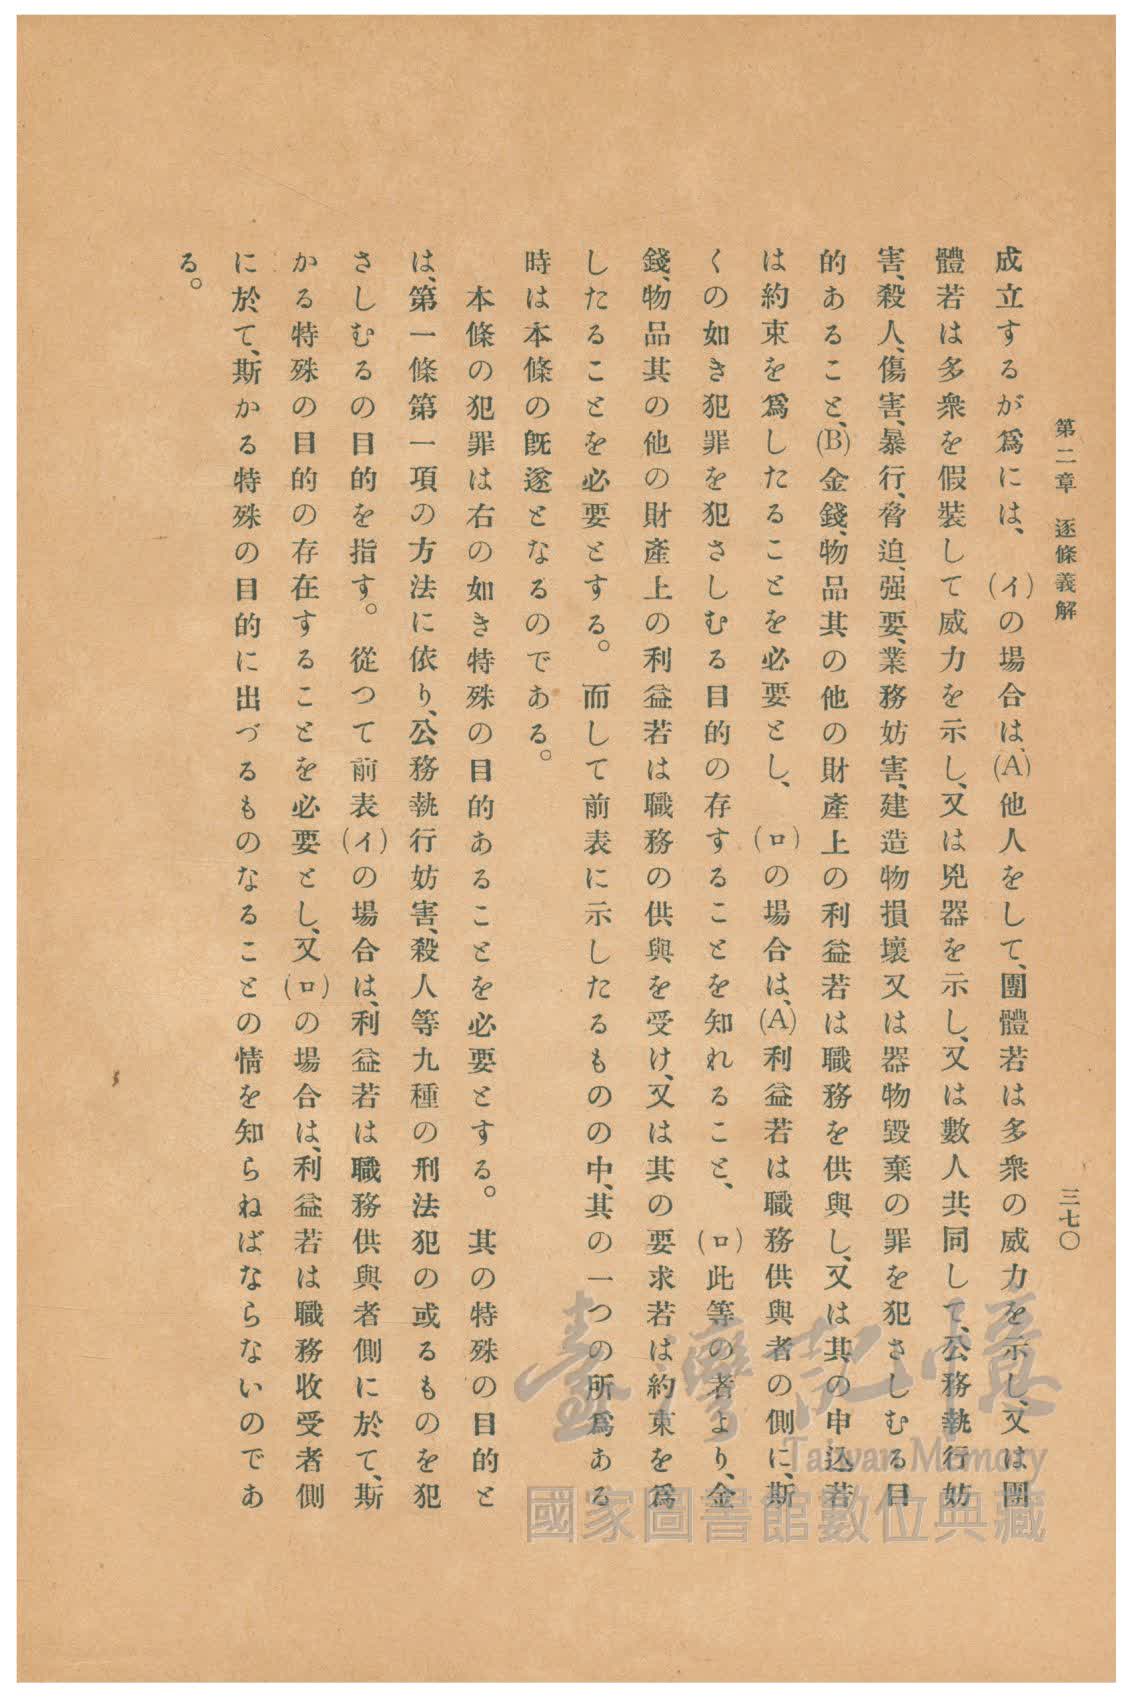 第二章　逐條義解
三七〇
成立するが爲には、(イ)の場合は、(A)他人をして、團體若は多衆の威力を示し、又は團
體若は多衆を假裝して威力を示し、又は兇器を示し、又は數人共同して、公務執行妨
害、殺人、傷害、暴行、脅迫、强要、業務妨害、建造物損壞又は器物毀棄の罪を犯さしむる目
的あること、(B)金錢、物品其の他の財產上の利益若は職務を供與し、又は其の申込若
は約束を爲したることを必要とし、(ロ)の場合は、(A)利益若は職務供與者の側に、斯
くの如き犯罪を犯さしむる目的の存することを知れること、(ロ)此等の者より、金
錢、物品其の他の財產上の利益若は職務の供與を受け、又は其の要求若は約束を爲
したることを必要とする。而して前表に示したるものの中、其の一つの所爲ある
時は本條の旣遂となるのである。
本條の犯罪は右の如き特殊の目的あることを必要とする。其の特殊の目的と
は、第一條第一項の方法に依り、公務執行妨害、殺人等九種の刑法犯の或るものを犯
さしむるの目的を指す。從つて前表(イ)の場合は、利益若は職務供與者側に於て、斯
かる特殊の目的の存在することを必要とし、又(ロ)の場合は、利益若は職務收受者側
に於て、斯かる特殊の目的に出づるものなることの情を知らねばならないのであ
る。
臺灣記憶
Taiwan Memory
國家圖書館數位典藏